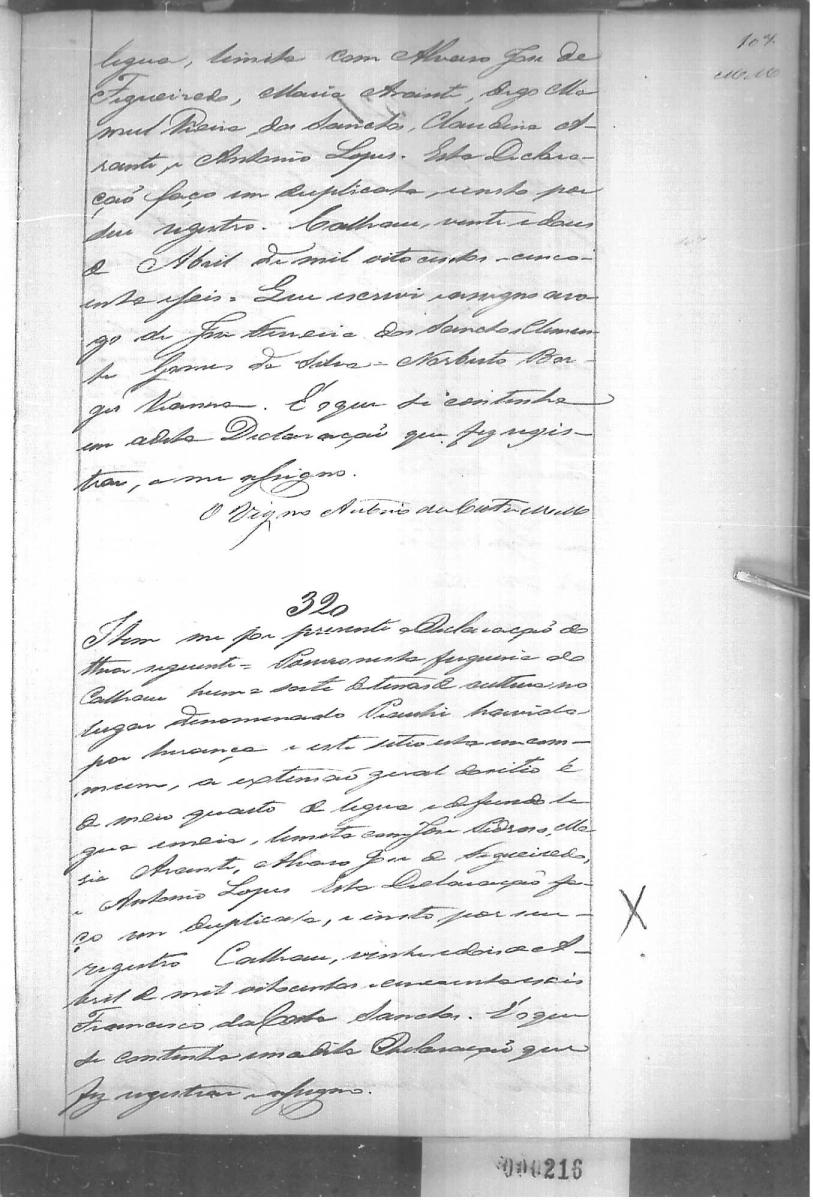 107
legua, limita com Alvaro Jose de
Figueiredo, Maria Arant, Ma
noel Vieira dos Sanctos, Claudina A-
rante, e Antonio Lopes. Esta Declara-
çaõ faço em duplicata, e insto por
seu registro. Calhau, vinte e dous
de Abril de mil oito centos e cinco-
enta e seis = Que escrevi e assigno a ro-
go de Jose Ferreira dos Sanctos Clemen-
te Gomes da Silva = Norberto Bor-
ges Vianna. É o que se continha
em a dita Declaraçaõ que fiz regis-
trar, e me assigno.
O Vigrº Antonio da
320
Item me foi presente a Declaraçaõ do
theor seguinte = Possuo nesta freguesia do
Calhau huma sorte de terras de cultura no
lugar denominado havida
por herança e este sitio esta em com-
mum, a extensaõ geral do sitio é
de meio quarto de legua e de fundo le
gua e meia, limita com Jose Pedroso, Ma
ria Arante, Alvaro Jose de Figueiredo,
e Antonio Lopes Esta Declaraçaõ fa-
ço em duplicata, e insto por seu
registro Calhau, vinte e dois de A-
bril de mil oitocentos e cincoenta e seis
Francisco da Costa Sanctos. É o que
se continha em a dita Declaraçaõ que
fiz registrar e assigno.
X
000216